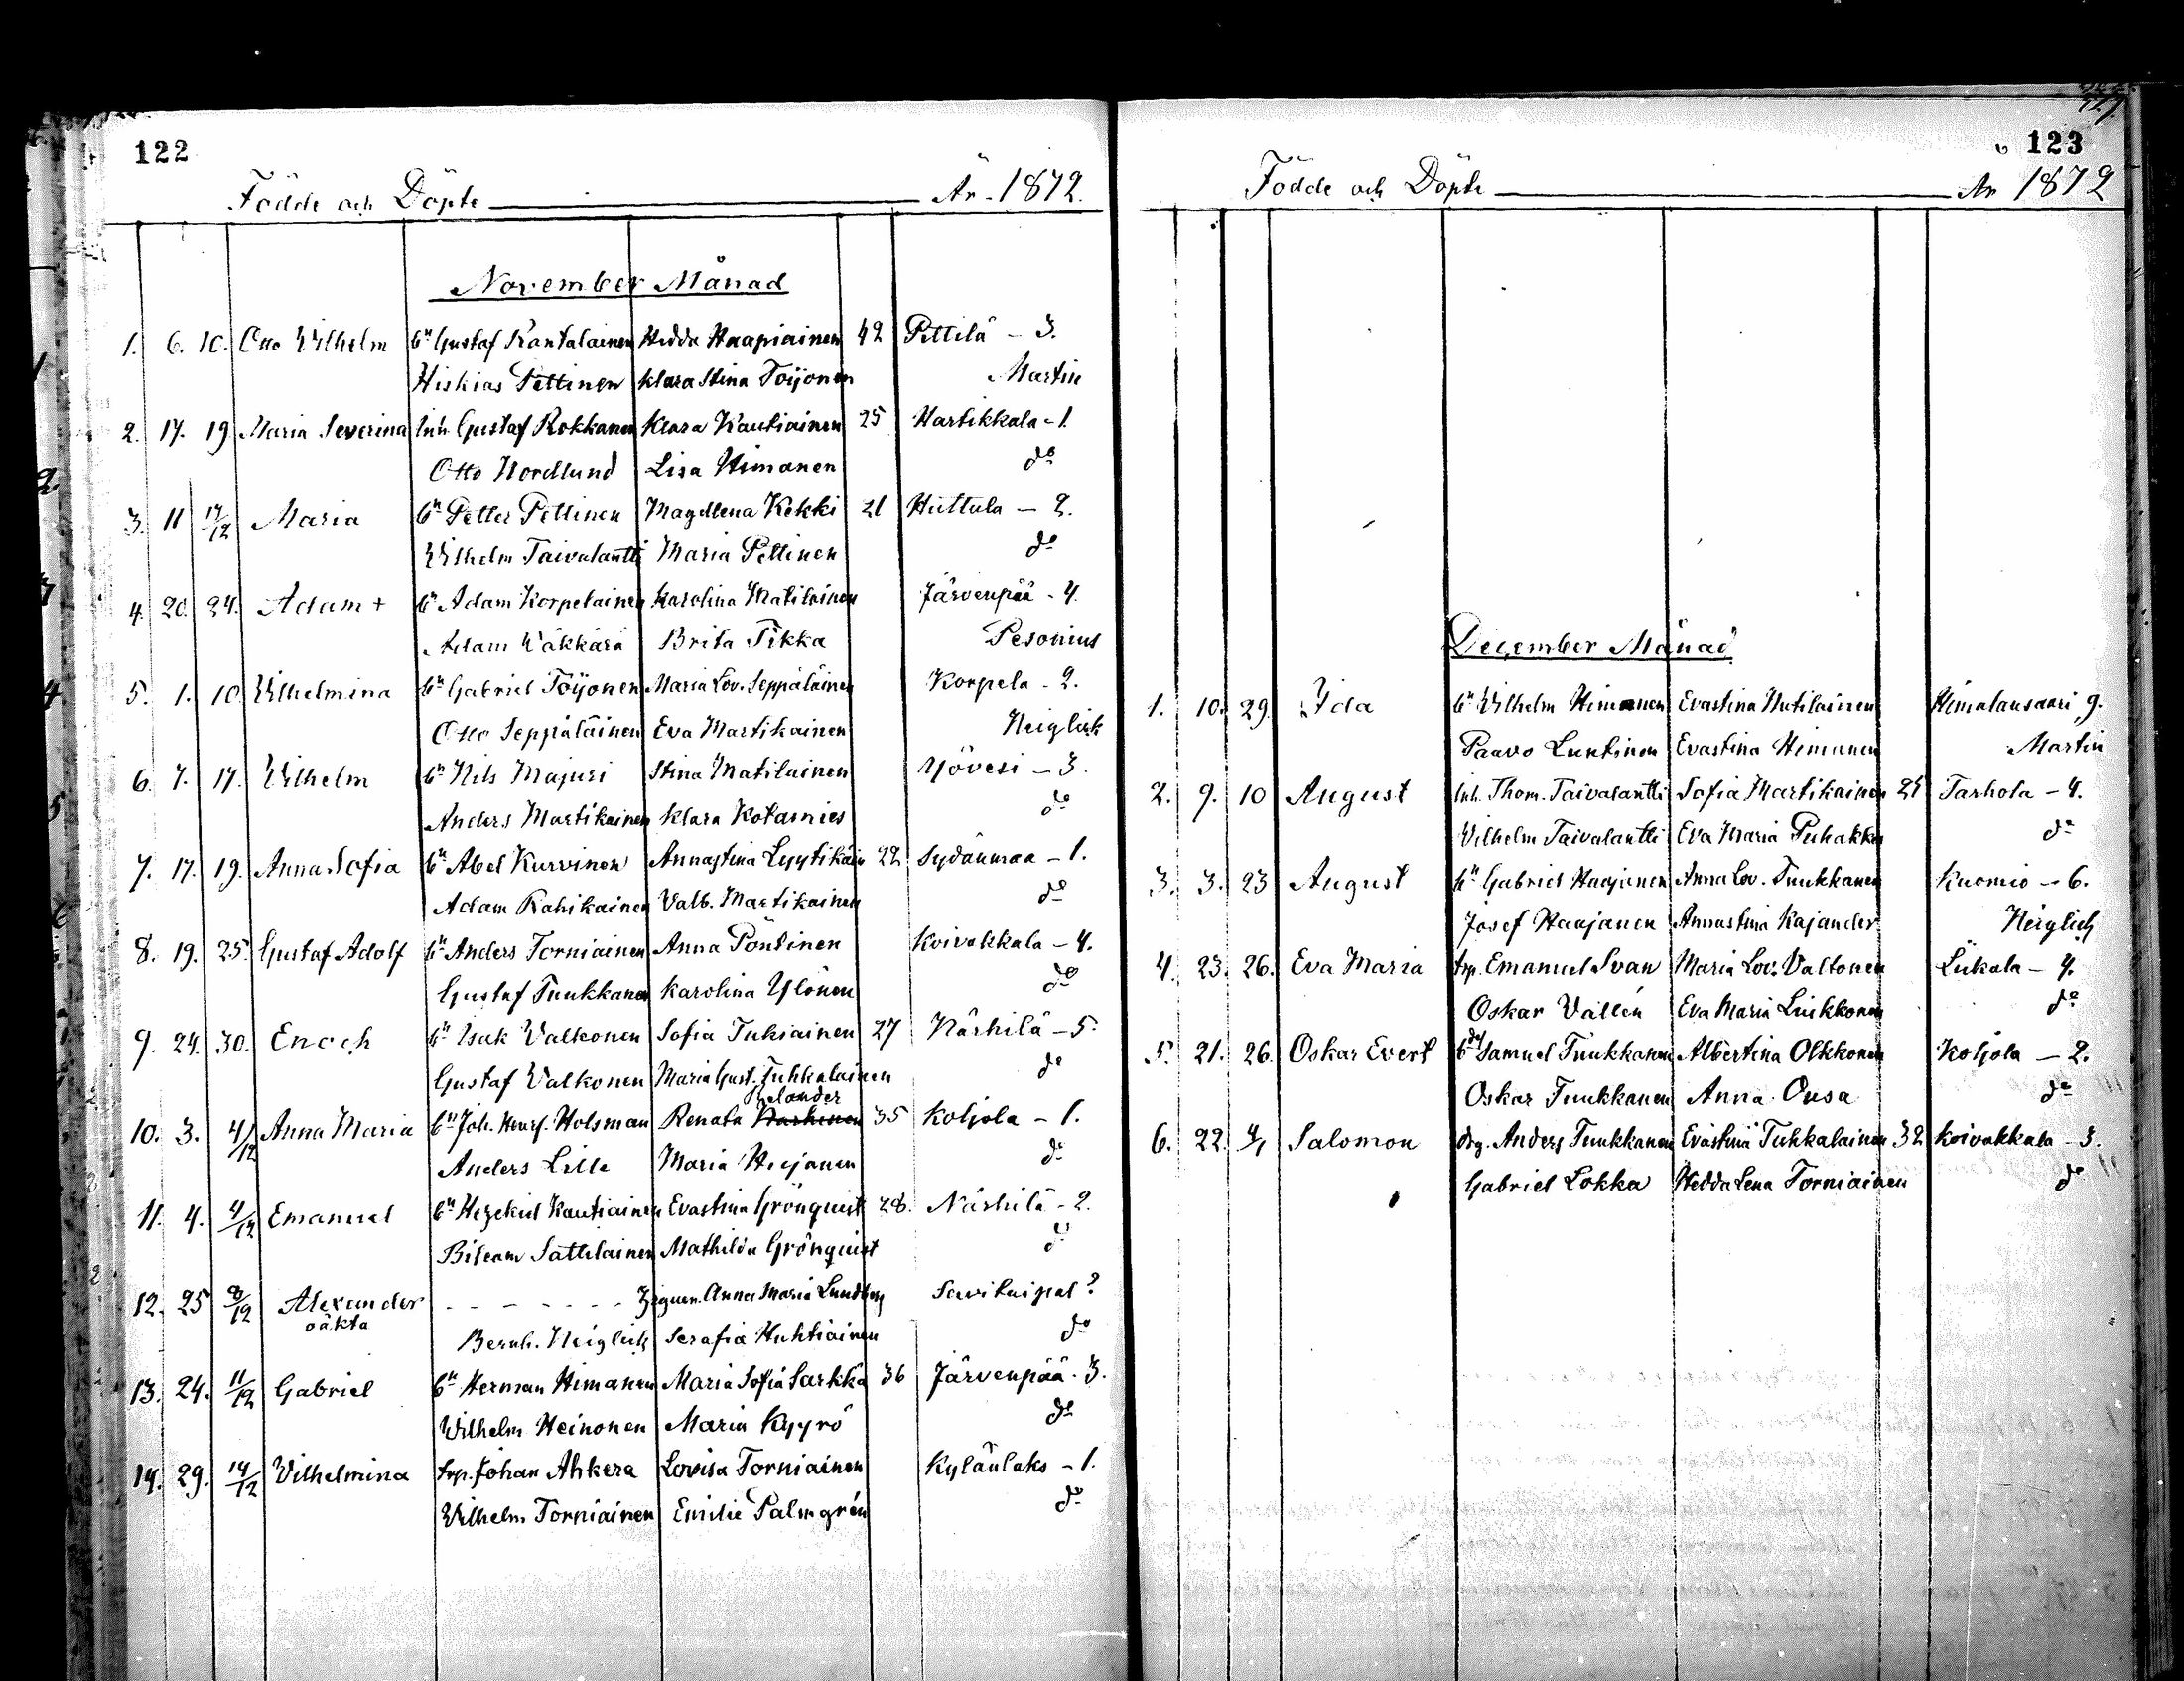 122
Födde och Döpte År 1872.
November Månad
1. 6. 10. Otto Vilhelm bn Gustaf Rantalainen Hedda Haapiainen 42 Pettilä - 3.
Hiskias Pettinen Klara Stina Toijonen Martin
2. 17. 19 Maria Severina Inh. Gustaf Rokkanen Klara Kautiainen 25 Hartikkala - 1.
Otto Nordlund Lisa Himanen do
3. 11 17/12 Maria bn Petter Pettinen Magdlena Kekki 21 Huttula - 2.
Vilhelm Taivalantti Maria Pettinen do
4. 20. 24. Adam + bn Adam Korpelainen Karolina Matilainen Järvenpää - 4.
Adam Wäkkärä Brita Tikka Pesonius
5. 1. 10. Vilhelmina bn Gabriel Toijonen Maria Lov. Seppäläinen Korpela - 2.
Otto Seppäläinen Eva Martikainen Neiglick
6. 7. 17. Vilhelm bn Nils Majuri Stina Matilainen Yövesi - 3.
Anders Martikainen Klara Kotamies do
7. 17. 19. Anna Sofia bn Abel Kurvinen Annastina Lyytikäin 22 Sydänmaa - 1.
Adam Rahikainen Valb. Martikainen do
8. 19. 25. Gustaf Adolf bn Anders Torniainen Anna Pöntinen Koivakkala - 4.
Gustaf Tuukkanen Karolina Ylönen do
9. 24. 30. Enoch bn Isak Valkonen Sofia Tuhiainen 27 Närhilä - 5.
Gustaf Valkonen Maria Gust. Tuhkalainen do
10. 3. 4/12 Anna Maria bn Joh. Henr. Holsman Renata Narhinen 35 Koljola - 1.
Anders Lille Maria Heijanen do
11. 4. 4/12 Emanuel bn Hezekiel Kautiainen Evastina Grönquist 28. Närhilä - 2.
Bileam Sattilainen Mathilda Grönquist do
12. 25 8/12 Alexander - - - - - - - Ziguen. Anna Maria Lundberg Savitaipal?
oäkta
Bernh. Neiglick Serafia Huhtiainen do
13. 24. 11/12 Gabriel bn Herman Himanen Maria Sofia Sarkka 36 Järvenpää. 3.
Vilhelm Heinonen Maria Kyyrö do
14. 29. 14/12 Vilhelmina trp. Johan Ahkera Lovisa Torniainen Kylänlaks - 1.
Vilhelm Torniainen Emilie Palmgrén do
123
Födde och Döpte År 1872
December Månad
1. 10. 29. Ida bn Vilhelm Himanen Evastina Nutilainen Himalansaari 9.
Paavo Luntinen Evastina Himanen Martin
2. 9. 10 August Inh. Thom. Taivalantti Sofia Martikainen 25 Tarhola - 4.
Vilhelm Taivalantti Eva Maria Puhakka do
3. 3. 23 August bn Gabriel Haajanen Anna Lov. Tuukkanen Kuomio - 6.
Josef Haajanen Annastina Kajander Neiglick
4. 23. 26. Eva Maria trp. Emanuel Svan Maria Lov. Valtonen Liikala - 4.
Oskar Vallén Eva Maria Liukkonen do
5. 21. 26. Oskar Evert Samuel Tuukkanen Albertina Olkkonen Koljola - 2.
Oskar Tuukkanen Anna Ousa do
6. 22. 4/1 Salomon drg. Anders Tuukkanen Evastina Tuhkalainen 32 Koivakkala - 3.
Gabriel Lokka Hedda Lena Torniainen do